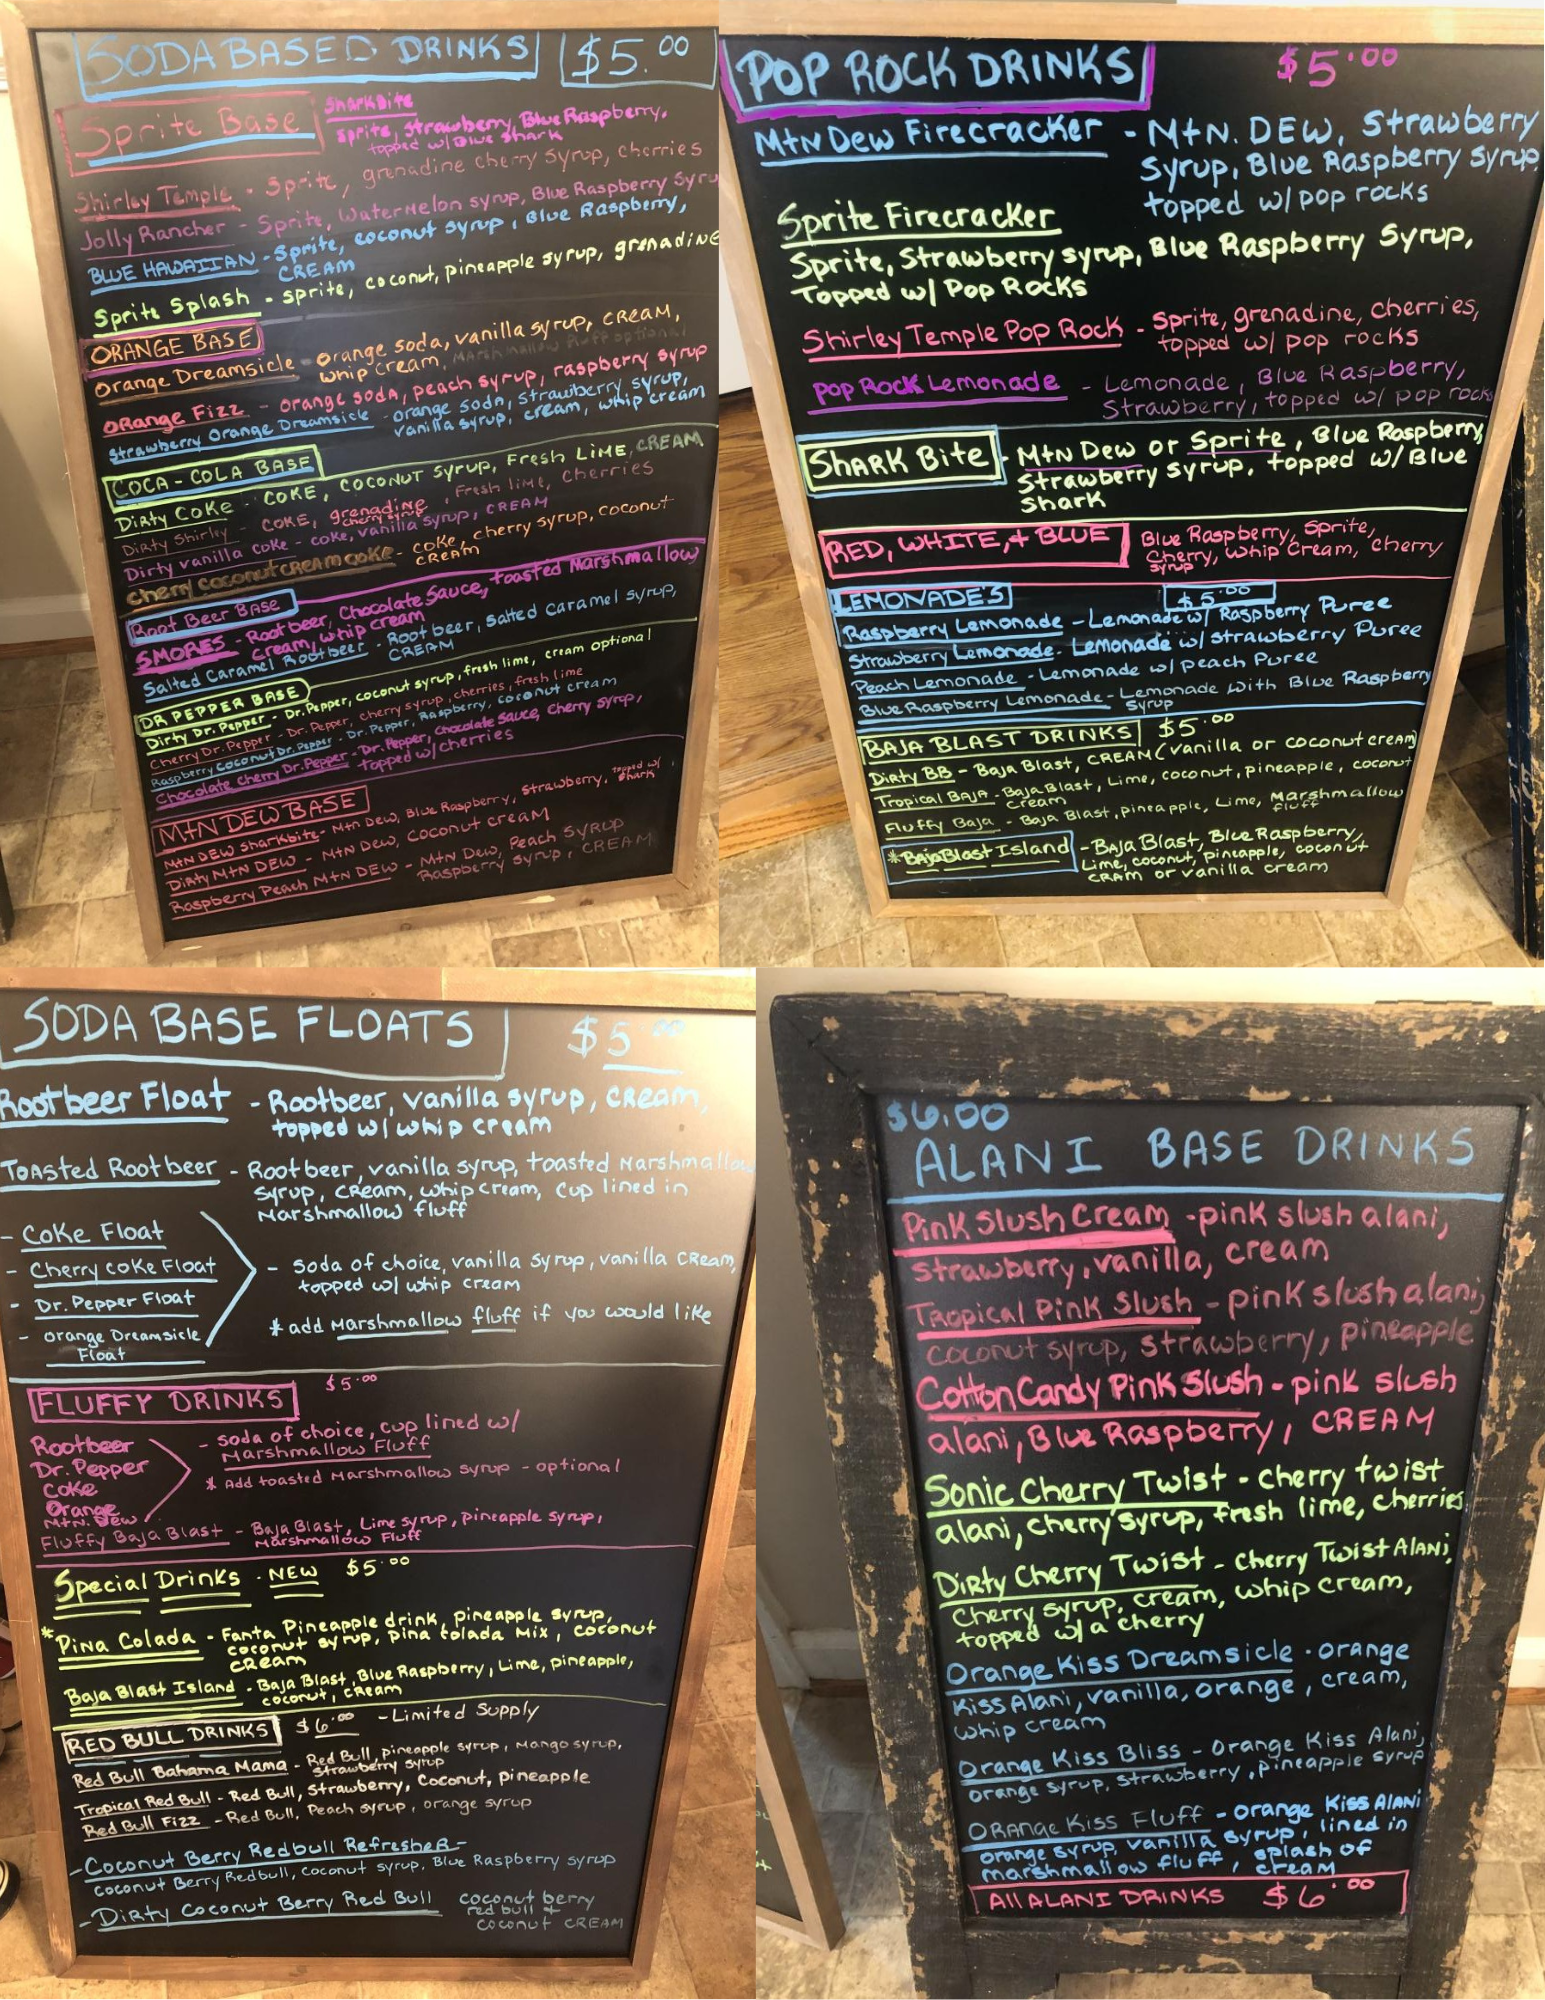 SODA BASED DRINKS $5.00
Sprite Base
SharkBite
sprite, strawberry, Blue Raspberry,
topped w/ Blue shark
Shirley Temple - Sprite, grenadine cherry syrup, cherries
Jolly Rancher - Sprite, Watermelon syrup, Blue Raspberry Syru
BLUE HAWAIIAN - Sprite, coconut syrup, Blue Raspberry,
CREAM
Sprite Splash - sprite, coconut, pineapple syrup, grenadine
ORANGE BASE
Orange Dreamsicle - orange soda, vanilla syrup, cream,
whip cream, Marshmallow fluff optional
ORange Fizz - orange soda, peach syrup, raspberry syrup
Strawberry Orange Dreamsicle - orange soda, strawberry syrup,
vanilla syrup, cream, whip cream
COCA-COLA BASE
Dirty Coke - COKE, coconut syrup, Fresh Lime, CREAM
Dirty Shirley - COKE, grenadine, Fresh lime, cherries
cherry syrup
Dirty vanilla coke - coke, vanilla syrup, CREAM
cherry coconut cream coke - coke, cherry syrup, coconut
CREAM
Root Beer Base
SMORES - Root beer, Chocolate Sauce, toasted Marshmallow
Cream, whip cream
Salted Caramel Rootbeer - Root beer, Salted Caramel syrup,
CREAM
DR PEPPER BASE
Dirty Dr. Pepper - Dr. Pepper, coconut syrup, fresh lime, cream optional
Cherry Dr. Pepper - Dr. Pepper, cherry syrup, cherries, fresh lime
Raspberry Coconut Dr. Pepper - Dr. Pepper, Raspberry, coconut cream
Chocolate Cherry Dr. Pepper - Dr. Pepper, Chocolate Sauce, Cherry syrup,
topped w/ cherries
MTN DEW BASE
Mtn Dew Sharkbite - Mtn Dew, Blue Raspberry, strawberry, topped w/
shark
Dirty MTN DEW - MTN Dew, Coconut cream
Raspberry Peach MTN DEW - MTN Dew, Peach Syrup
Raspberry syrup, CREAM
POP ROCK DRINKS $5.00
Mtn Dew Firecracker - Mtn. DEW, Strawberry
Syrup, Blue Raspberry Syrup
topped w/ pop rocks
Sprite Firecracker
Sprite, Strawberry syrup, Blue Raspberry Syrup,
Topped w/ Pop Rocks
Shirley Temple Pop Rock - Sprite, grenadine, cherries,
topped w/ pop rocks
Pop Rock Lemonade - Lemonade, Blue Raspberry,
Strawberry, topped w/ pop rocks
Shark Bite - Mtn Dew or Sprite, Blue Raspberry,
Strawberry syrup, topped w/ Blue
Shark
RED, WHITE, + BLUE Blue Raspberry, Sprite,
Cherry, whip cream, cherry
syrup
LEMONADE'S $5.00
Raspberry Lemonade - Lemonade w/ Raspberry Puree
Strawberry Lemonade - Lemonade w/ strawberry Puree
Peach Lemonade - Lemonade w/ peach Puree
Blue Raspberry Lemonade - Lemonade with Blue Raspberry
Syrup
BAJA BLAST DRINKS $5.00
Dirty BB - Baja Blast, CREAM (vanilla or coconut cream)
Tropical BAJA - Baja Blast, Lime, coconut, pineapple, coconut
cream
Fluffy Baja - Baja Blast, pineapple, Lime, Marshmallow
fluff
*Baja Blast Island - Baja Blast, Blue Raspberry,
Lime, coconut, pineapple, coconut
CRAM or vanilla cream
SODA BASE FLOATS $5.00
Rootbeer Float - Rootbeer, vanilla syrup, cream,
topped w/ whip cream
TOASTED Rootbeer - Rootbeer, vanilla syrup, toasted Marshmallow
syrup, cream, whip cream, cup lined in
Marshmallow fluff
- Coke Float
- Cherry coke Float
- Dr. Pepper Float
- orange Dreamsicle
Float
- soda of choice, vanilla syrup, vanilla cream,
topped w/ whip cream
* add Marshmallow fluff if you would like
FLUFFY DRINKS $5.00
Rootbeer
Dr. Pepper
Coke
Orange
Mtn. Dew
- soda of choice, cup lined w/
Marshmallow Fluff
* Add toasted Marshmallow syrup - optional
Fluffy Baja Blast - Baja Blast, Lime syrup, pineapple syrup,
Marshmallow Fluff
Special Drinks - NEW $5.00
*Pina Colada - Fanta Pineapple drink, pineapple syrup,
coconut syrup, pina colada mix, coconut
cream
Baja Blast Island - Baja Blast, Blue Raspberry, Lime, pineapple,
coconut, cream
RED BULL DRINKS $6.00 - Limited Supply
Red Bull Bahama Mama - Red Bull, pineapple syrup, Mango syrup,
strawberry syrup
Tropical Red Bull - Red Bull, Strawberry, Coconut, pineapple
Red Bull Fizz - Red Bull, Peach syrup, orange syrup
- Coconut Berry Redbull Refresher -
Coconut Berry Redbull, coconut syrup, Blue Raspberry syrup
- Dirty Coconut Berry Red Bull coconut berry
red bull +
coconut CREAM
$6.00
ALANI BASE DRINKS
Pink Slush Cream - pink slush alani,
strawberry, vanilla, cream
Tropical Pink Slush - pink slush alani,
coconut syrup, strawberry, pineapple
Cotton Candy Pink Slush - pink slush
alani, Blue Raspberry, CREAM
Sonic Cherry Twist - cherry twist
alani, cherry syrup, fresh lime, cherries
Dirty Cherry Twist - Cherry Twist Alani,
Cherry syrup, cream, whip cream,
topped w/ a cherry
Orange Kiss Dreamsicle - orange
Kiss Alani, vanilla, orange, cream,
whip cream
Orange Kiss Bliss - Orange Kiss Alani,
orange syrup, strawberry, pineapple syrup
ORANGE Kiss Fluff - orange Kiss ALANI
orange syrup, vanilla syrup, lined in
marshmallow fluff, splash of
cream
All ALANI DRINKS $6.00